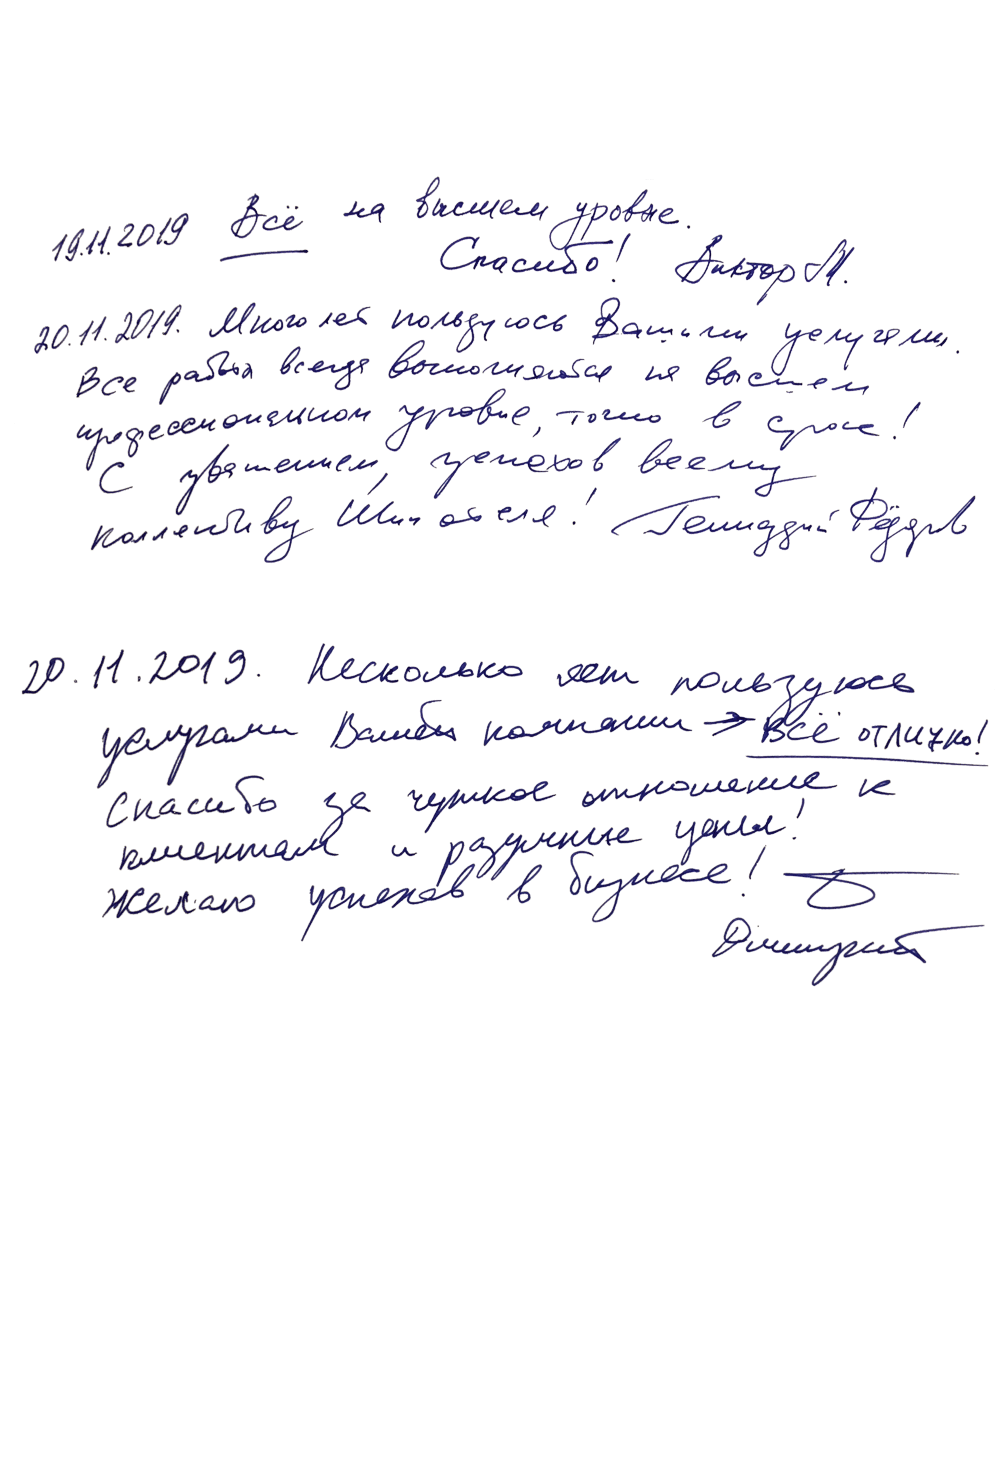 19.11.2019 Всё на высшем уровне.
Спасибо! Виктор М.
20.11.2019. Много лет пользуюсь Вашими услугами.
Все работы всегда выполняются на высшем
профессиональном уровне, точно в срок!
С уважением, успехов всему
коллективу Шинателя! Геннадий Фёдоров
20.11.2019. Несколько лет пользуюсь
услугами Вашей компании → Всё отлично!
Спасибо за чуткое отношение к
клиентам и разумные цены!
Желаю успехов в бизнесе!
Дмитрий